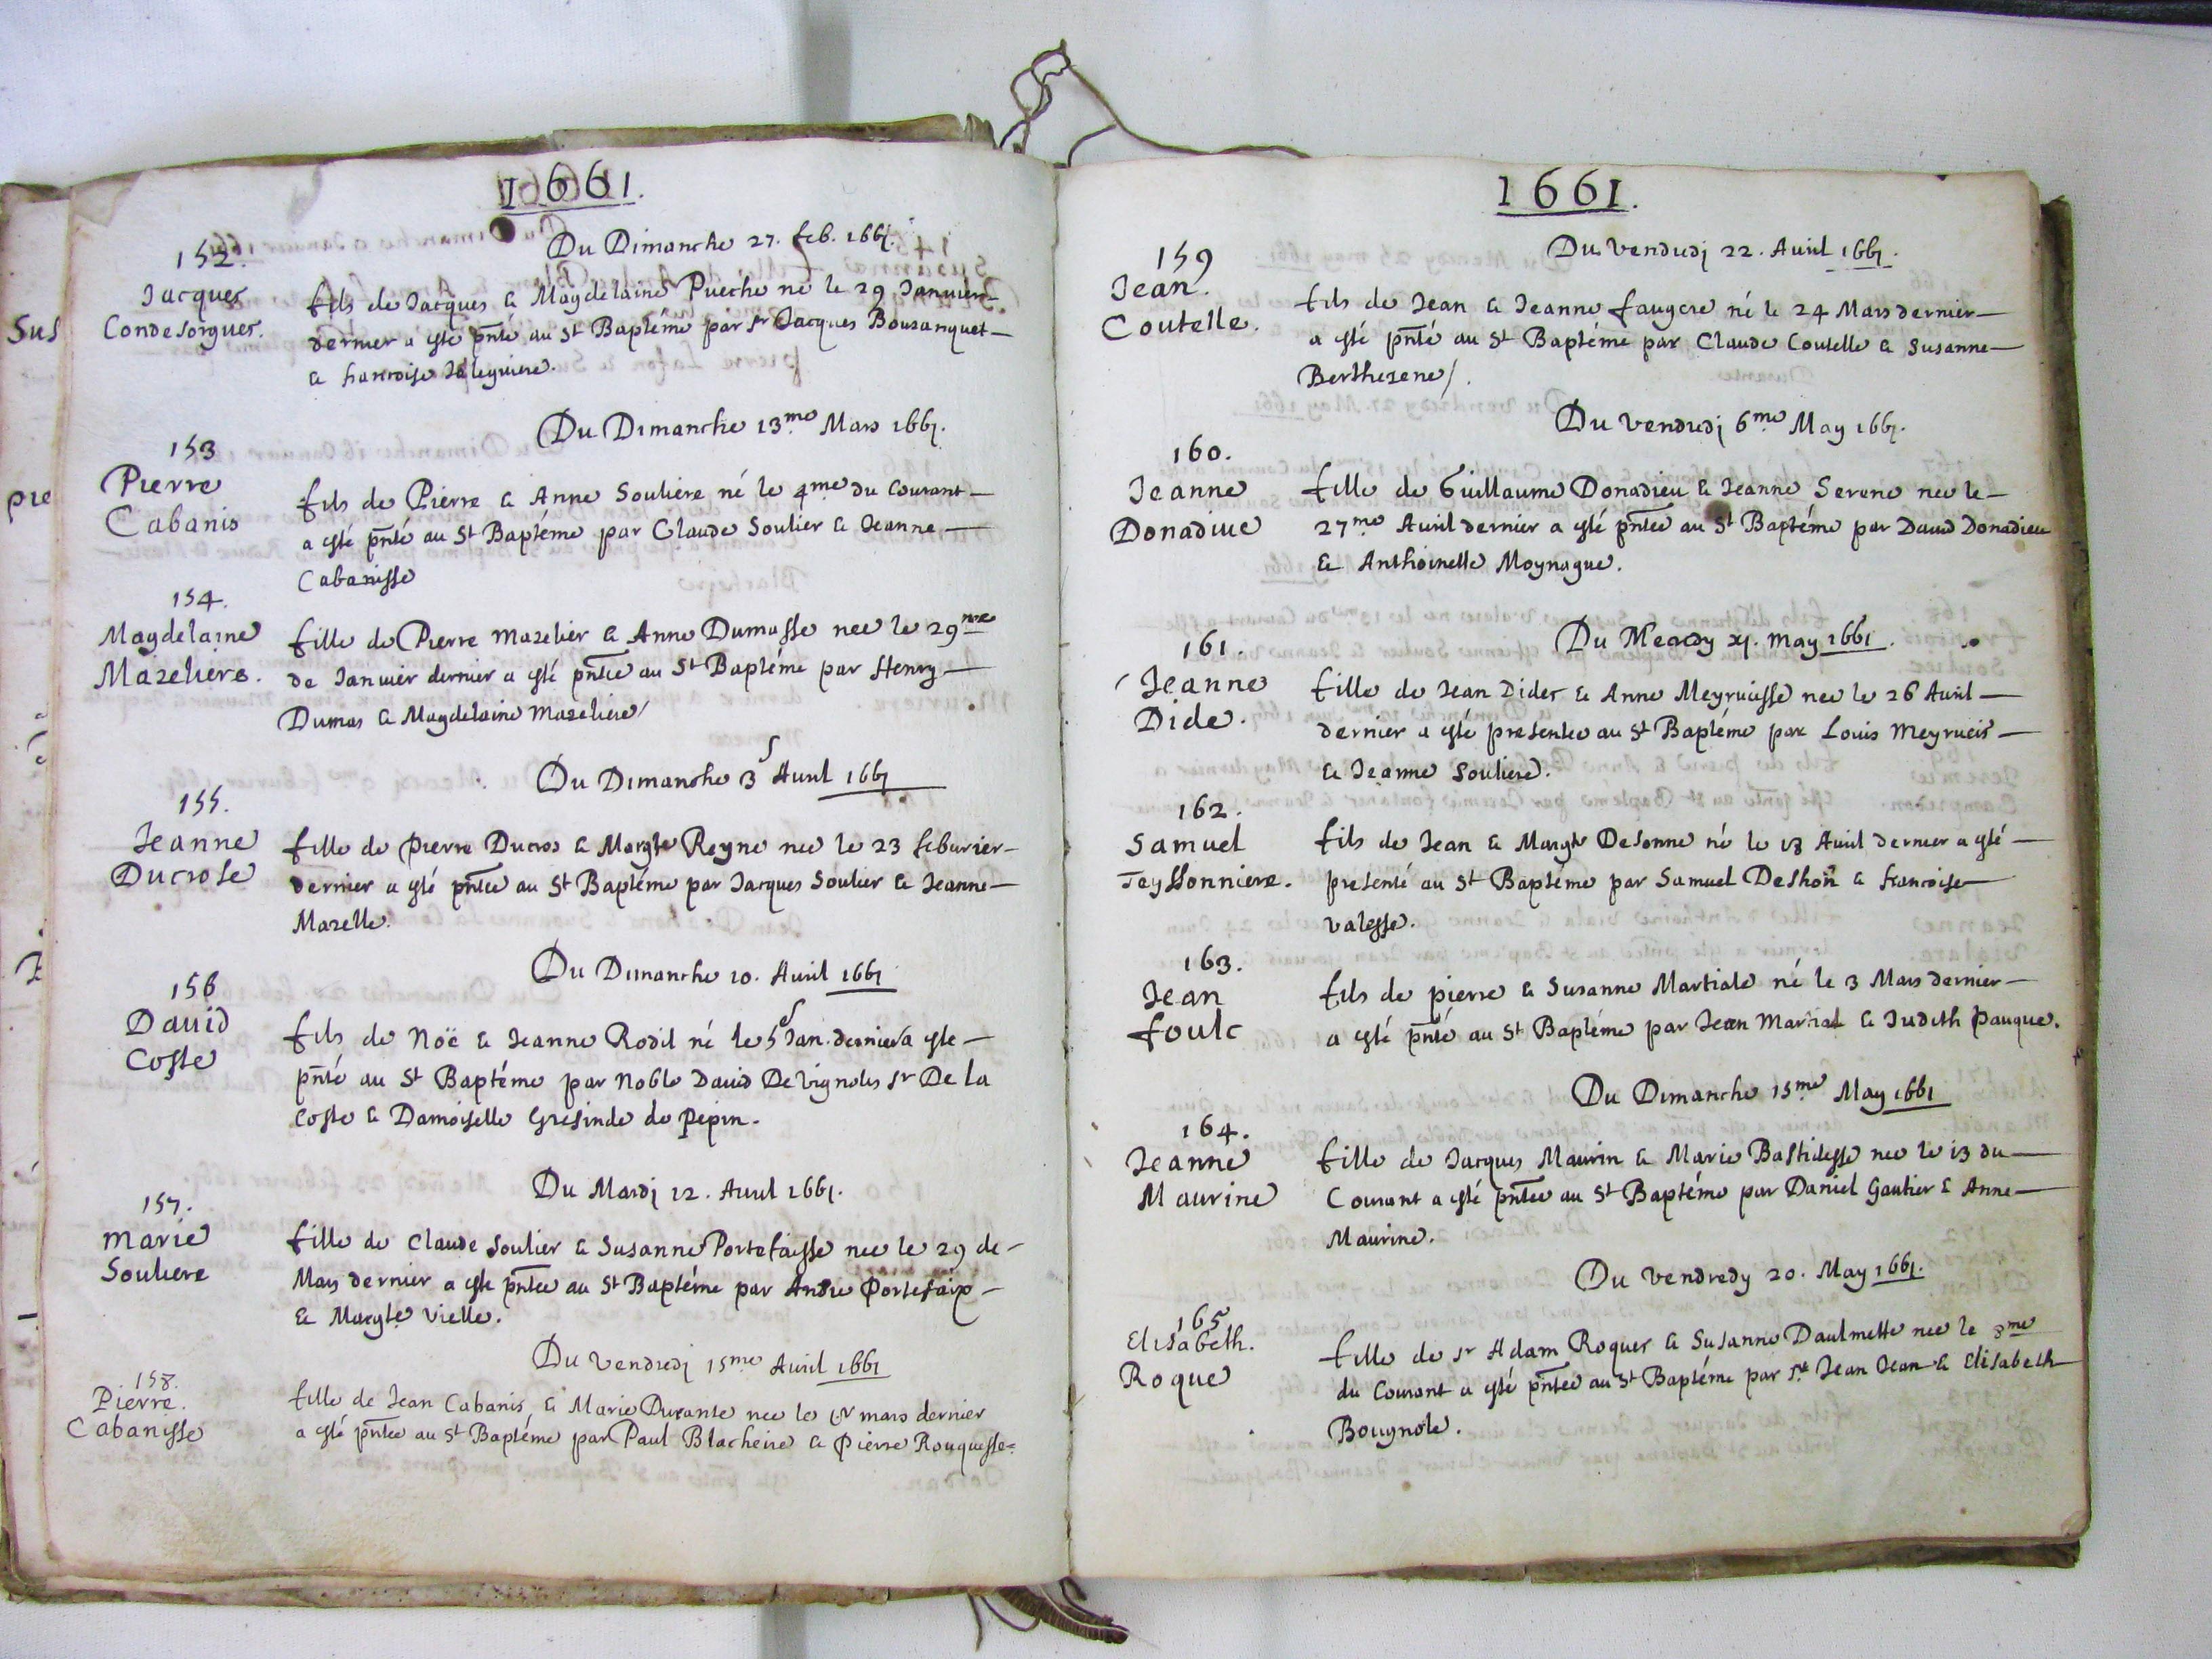 1661.
Du Dimanche 27. feb. 1661.
152.
Jacques
Condesorgues.
fils de Jacques & Magdelaine Pueche né le 29 Janvier
dernier a esté pñté au St Baptéme par sr Jacques Bousanquet
& francoise
Du Dimanche 13.me Mars 1661.
153
Pierre
Cabanis
fils de Pierre & Anne Souliere né le 4me du Courant
a esté pñté au St Baptéme par Claude Soulier & Jeanne
Cabanisse
154.
Magdelaine
Mazeliere.
fille de Pierre mazelier & Anne Dumasse nee le 29me
de Januier dernier a esté pñtée au St Baptéme par Henry
Dumas & Magdelaine mazeliere
Du Dimanche 3 Auril 1661
155.
Jeanne
Ducrose
fille de pierre Ducros & Margte Reyne nee le 23 feburier
dernier a esté pñtée au St Baptéme par Jacques Soulier & Jeanne
Mazelle.
Du Dimanche 10. Auril 1661
156
Dauid
Coste
fils de Noë & Jeanne Rodil né le 5 Jan. dernier a este
pñté au St Baptéme par Noble Dauid DeVignoles sr De la
Coste & Damoiselle Gresinde de pepin.
Du Mardj 12. Auril 1661.
157.
Marie
Souliere
fille de Claude Soulier & Susanne Portefaisse nee le 29 de
Mars dernier a este pñtee au St Baptéme par Andre Portefaix
& Margte Vielle.
Du Vendredj 15me Auril 1661
158.
Pierre.
Cabanisse
fille de Jean Cabanis & Marie Durante nee le mars dernier
a esté pñtee au St Baptéme par Paul Blacheire & Pierre Rouquesse
1661.
Du Vendredj 22. Auril 1661.
159
Jean.
Coutelle.
fils de Jean & Jeanne faugere né le 24 Mars dernier
a esté pñté au St Baptéme par Claude Coutelle & Susanne
Berthezene/.
Du Vendredj 6.me May 1661.
160.
Jeanne
Donadiue
fille de Guillaume Donadieu & Jeanne Serene nee le
27.me Auril dernier a esté pñtee au St Baptéme par Dauid Donadieu
& Anthoinette Moynague.
Du Mecredy xj. may 1661.
161.
Jeanne
Dide.
fille de Jean Dides & Anne Meyrueisse nee le 26 Auril
dernier a esté presentee au St Baptéme par Louis Meyrueis
& Jeanne Souliere.
162.
Samuel
Teyssonniere.
fils de Jean & Margte Desonne né le 18 Auril dernier a esté
presenté au St Baptéme par Samuel Deshon & francoise
Valesse.
163.
Jean
foulc
fils de pierre & Susanne Martiale né le 3 Mars dernier
a esté pñté au St Baptéme par Jean Martial & Judith pauque.
Du Dimanche 15.me May 1661
164.
Jeanne
Maurine
fille de Jacques Maurin & Marie Bastidesse nee le 13 du
Courant a esté pñtee au St Baptéme par Daniel Gautier & Anne
Maurine.
Du Vendredy 20. May 1661.
165
Elisabeth.
Roque
fille de sr Adam Roques & Susanne Daulmette nee le 8me
du Courant a esté pñtee au St Baptéme par sr Jean Jean & Elisabeth
Bougnole.
Sus
pie